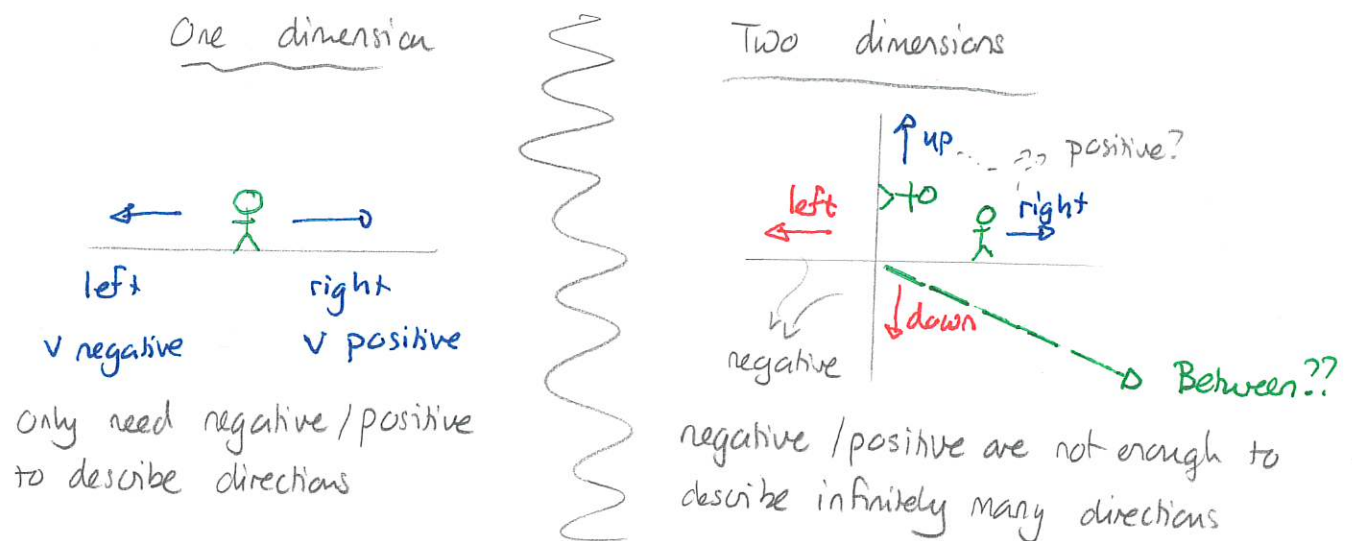 One dimension
left
right
v negative
v positive
only need negative/positive
to describe directions
Two dimensions
up
?? positive?
left
right
down
negative
Between??
negative/positive are not enough to
describe infinitely many directions